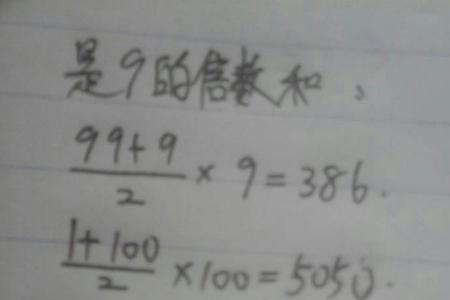 是9的倍数和、
(99+9)/2 × 9 = 386.
(1+100)/2 ×100 = 5050.